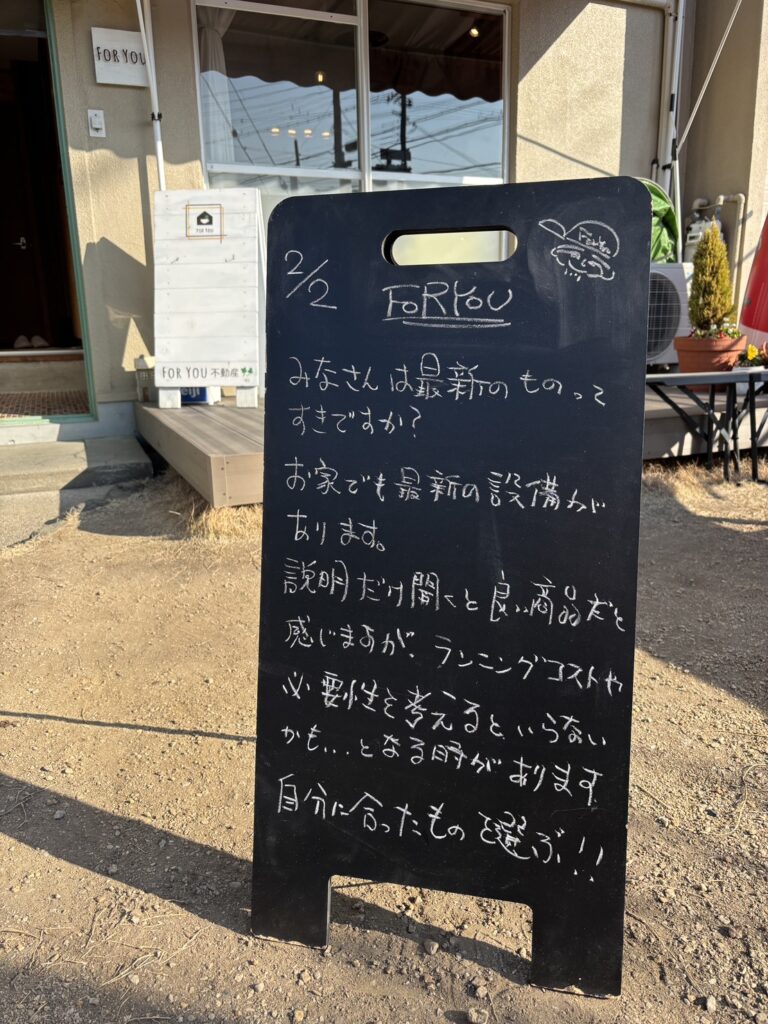 FOR YOU
FOR YOU
FOR YOU 不動産
2/2
FORYOU
みなさんは最新のものって
すきですか?
お家でも最新の設備が
あります。
説明だけ聞くと良い商品だと
感じますが、ランニングコストや
必要性を考えるといらない
かも...となる時があります
自分に合ったものを選ぶ!!